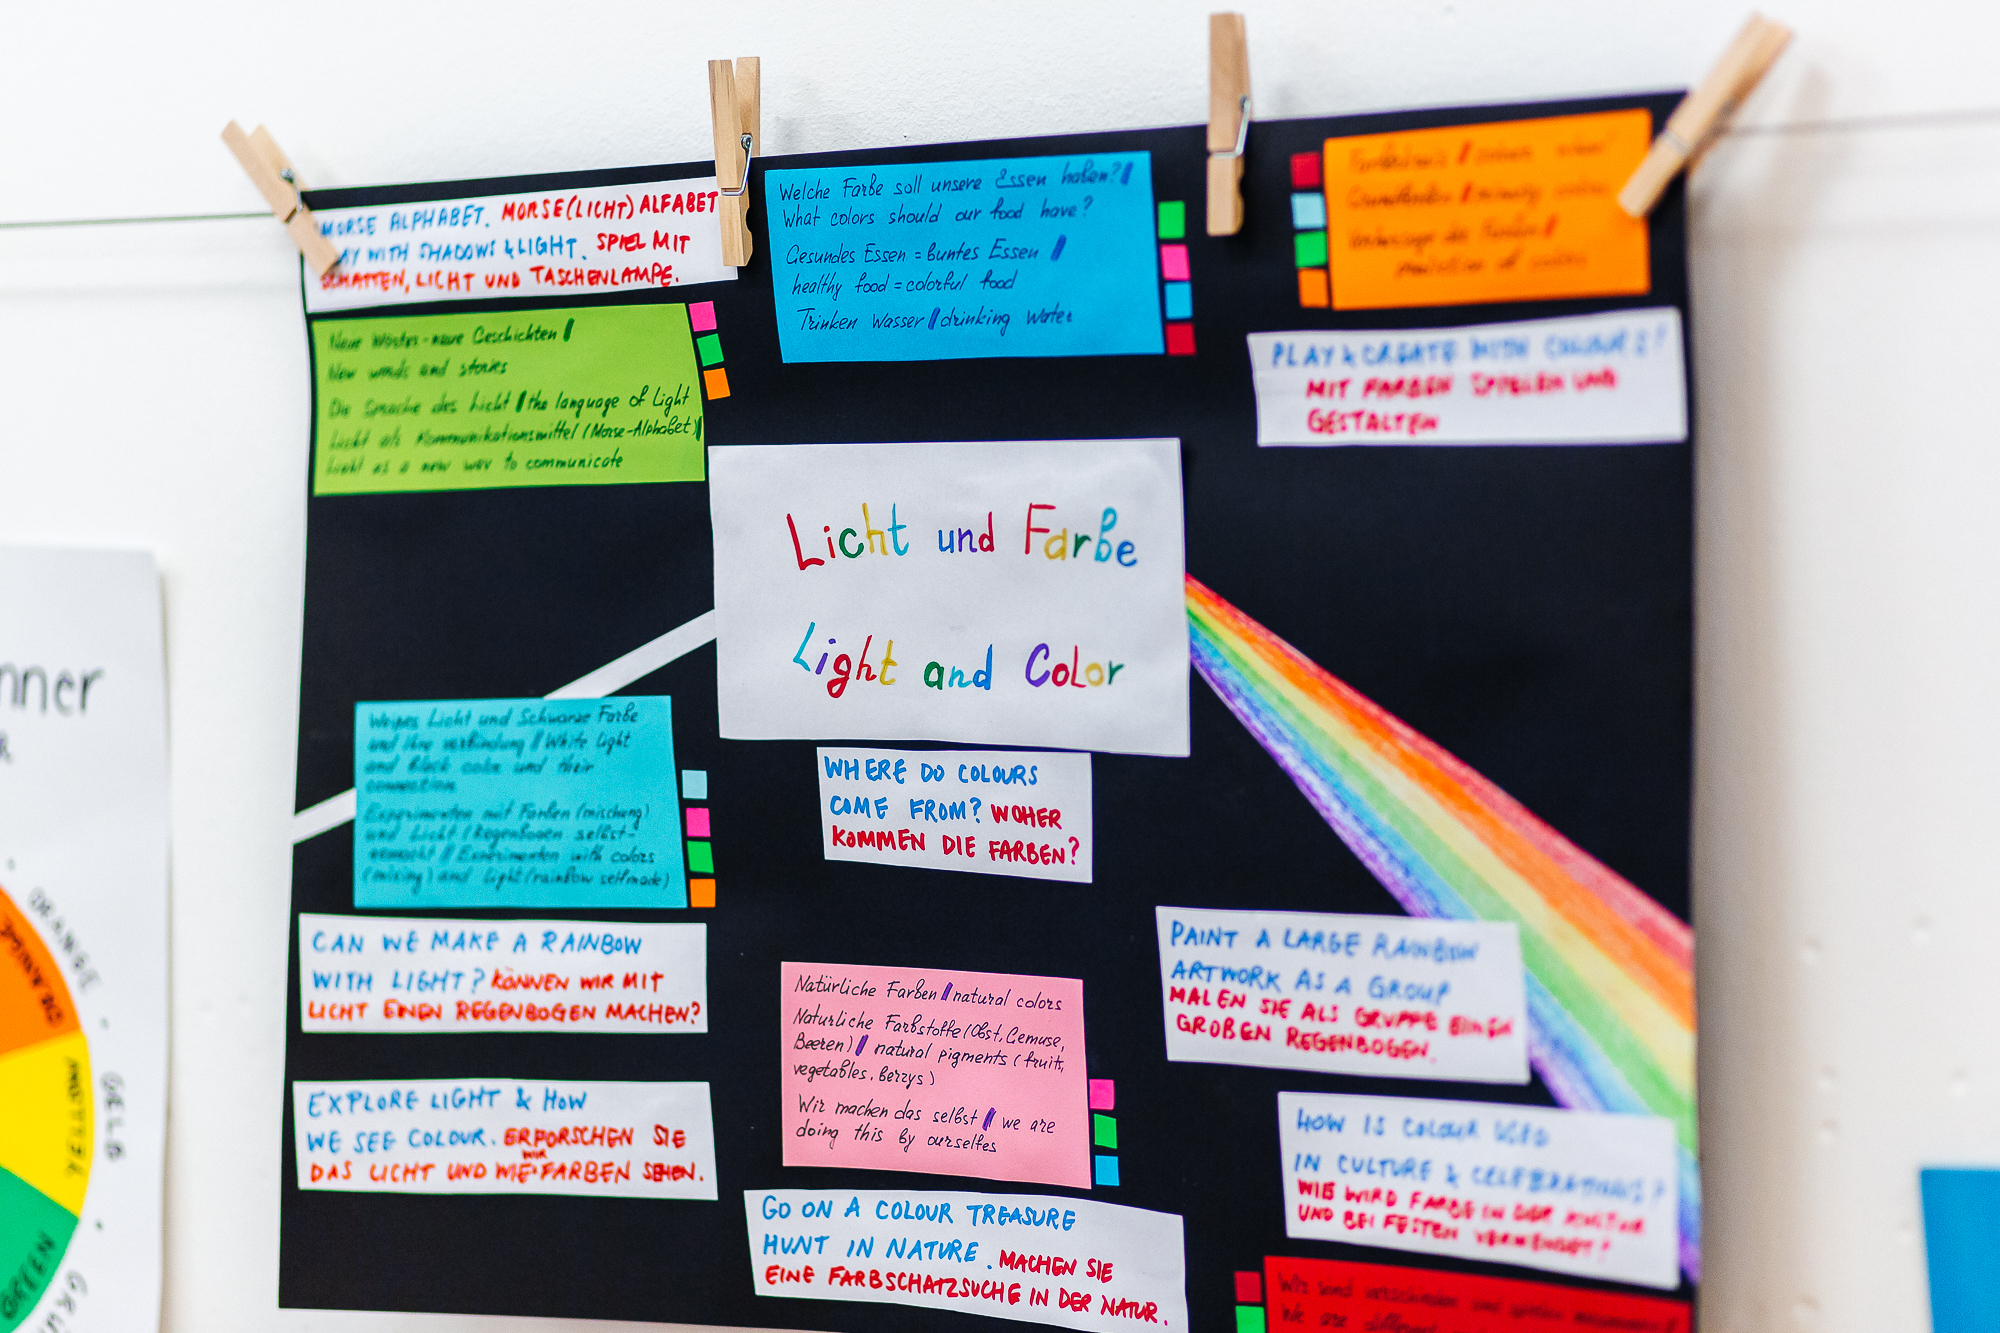 MORSE ALPHABET. MORSE(LICHT) ALFABET
WITH SHADOWS & LIGHT. SPIEL MIT
SCHATTEN, LICHT UND TASCHENLAMPE.
Neue Wörter-neue Geschichten /
New words and stories
Die Sprache des Licht / the language of Light
Licht als Kommunikationsmittel (Morse-Alphabet) /
Light as a new way to communicate
Welche Farbe soll unsere Essen haben? /
What colors should our food have?
Gesundes Essen = buntes Essen /
healthy food = colorful food
Trinken Wasser / drinking water
Farbkreis / colors wheel
Grundfarben / primary colors
PLAY & CREATE WITH COLOURS!
MIT FARBEN SPIELEN UND
GESTALTEN
Licht und Farbe
Light and Color
Weißes Licht und Schwarze Farbe
und ihre verbindung // White light
and Black color und their
connection
Experimenten mit Farben (mischung)
und Licht (Regenbogen selbst-
gemacht) // Experimenten with colors
(mixing) and light (rainbow selfmade)
WHERE DO COLOURS
COME FROM? WOHER
KOMMEN DIE FARBEN?
CAN WE MAKE A RAINBOW
WITH LIGHT? KÖNNEN WIR MIT
LICHT EINEN REGENBOGEN MACHEN?
EXPLORE LIGHT & HOW
WE SEE COLOUR. ERFORSCHEN SIE
DAS LICHT UND WIE WIR FARBEN SEHEN.
Natürliche Farben / natural colors
Naturliche Farbstoffe (Obst, Gemuse,
Beeren) / natural pigments (fruits,
vegetables, berrys)
Wir machen das selbst / we are
doing this by ourselfes
GO ON A COLOUR TREASURE
HUNT IN NATURE. MACHEN SIE
EINE FARBSCHATZSUCHE IN DER NATUR.
PAINT A LARGE RAINBOW
ARTWORK AS A GROUP
MALEN SIE ALS GRUPPE EINEN
GROßEN REGENBOGEN.
HOW IS COLOUR USED
IN CULTURE & CELEBRATIONS?
WIE WIRD FARBE IN DER KULTUR
UND BEI FESTEN VERWENDET?
Wir sind verschieden und
We are different
nner
R
ORANGE
ORANGE
GELB
YELLOW
GREEN
GRÜN